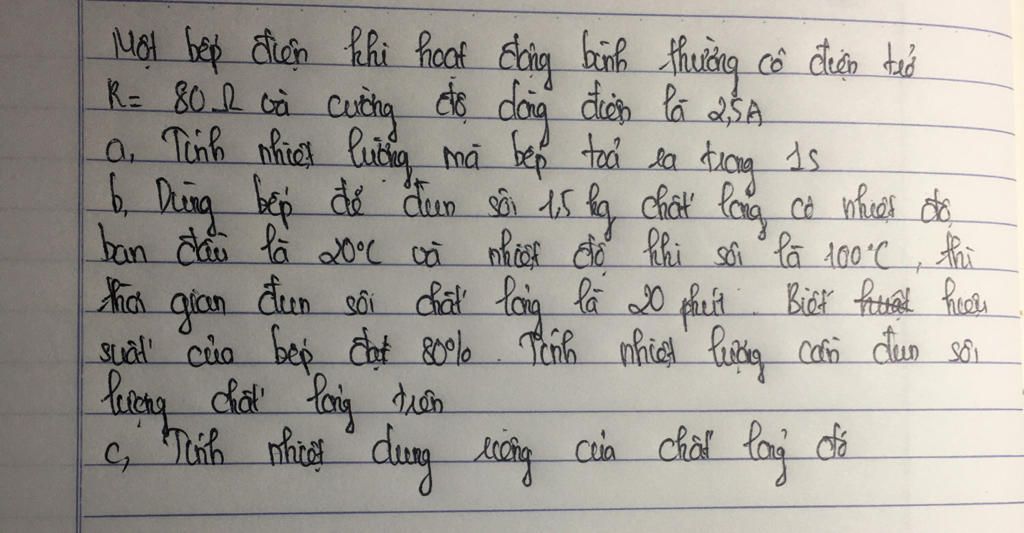 Một bếp điện khi hoạt động bình thường có điện trở
R = 80 Ω và cường độ dòng điện là 2,5A
a, Tính nhiệt lường mà bếp toả ra trong 1s
b, Dùng bếp để đun sôi 1,5 kg chất lỏng có nhiệt độ
ban đầu là 20°C và nhiệt độ khi sôi là 100°C, thì
thời gian đun sôi chất lỏng là 20 phút. Biết hiệu
suất của bếp đạt 80%. Tính nhiệt lượng cần đun sôi
lượng chất lỏng trên
c, Tính nhiệt dung riêng của chất lỏng đó